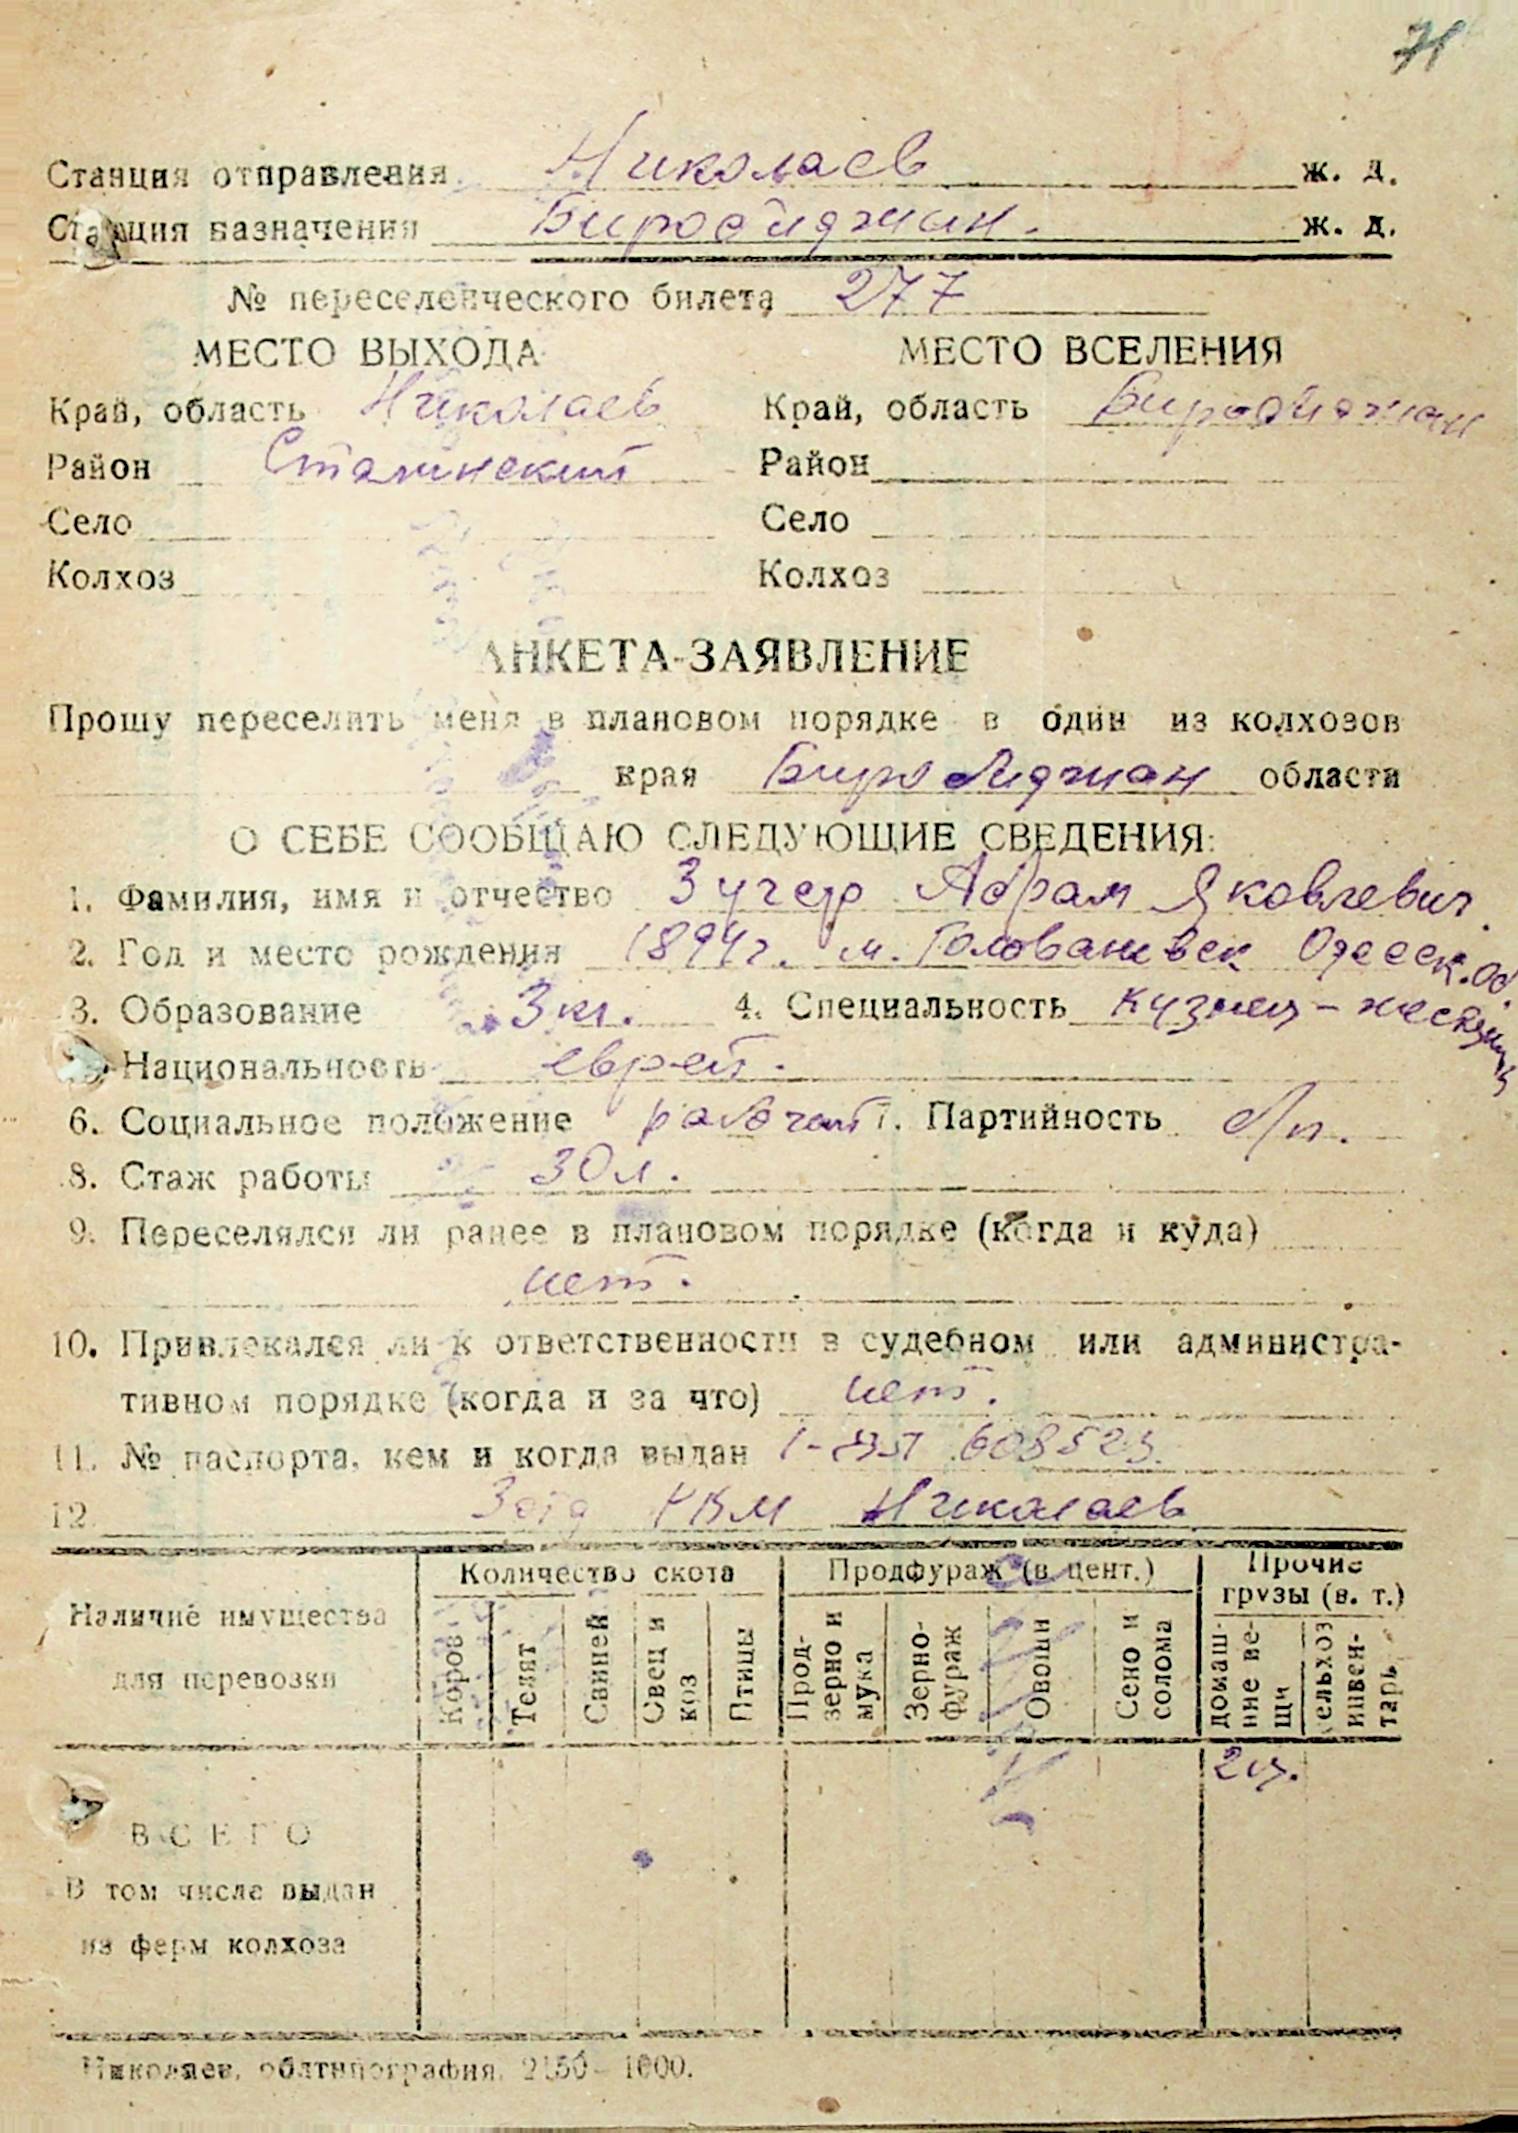 71
Станция отправления Николаев ж. д.
Станция назначения Биробиджан. ж. д.
№ переселенческого билета 277
МЕСТО ВЫХОДА МЕСТО ВСЕЛЕНИЯ
Край, область Николаев Край, область Биробиджан
Район Сталинский Район
Село Село
Колхоз Колхоз
АНКЕТА-ЗАЯВЛЕНИЕ
Прошу переселить меня в плановом порядке в один из колхозов
края Биробиджан области
О СЕБЕ СООБЩАЮ СЛЕДУЮЩИЕ СВЕДЕНИЯ:
1. Фамилия, имя и отчество Зугер Абрам Яковлевич
2. Год и место рождения 1894 г. м. Голованевск Одесск. об.
3. Образование 3 кл. 4. Специальность кузнец - жестянщик
Национальность еврей.
6. Социальное положение рабочий 7. Партийность б/п.
8. Стаж работы 30 л.
9. Переселялся ли ранее в плановом порядке (когда и куда)
нет.
10. Привлекался ли к ответственности в судебном или администра-
тивном порядке (когда и за что) нет.
11. № паспорта, кем и когда выдан 608523.
12. Николаев
Наличие имущества для перевозки
Количество скота Продфураж (в цент.) Прочие грузы (в. т.)
Коров Телят Свиней Овец и коз Птицы Прод-зерно и мука Зерно-фураж Овощи Сено и солома домаш-ние ве-щи сельхоз инвен-тарь
2 ц.
ВСЕГО
В том числе выдан
из ферм колхоза
Николаев, облтипография. 2150—1000.